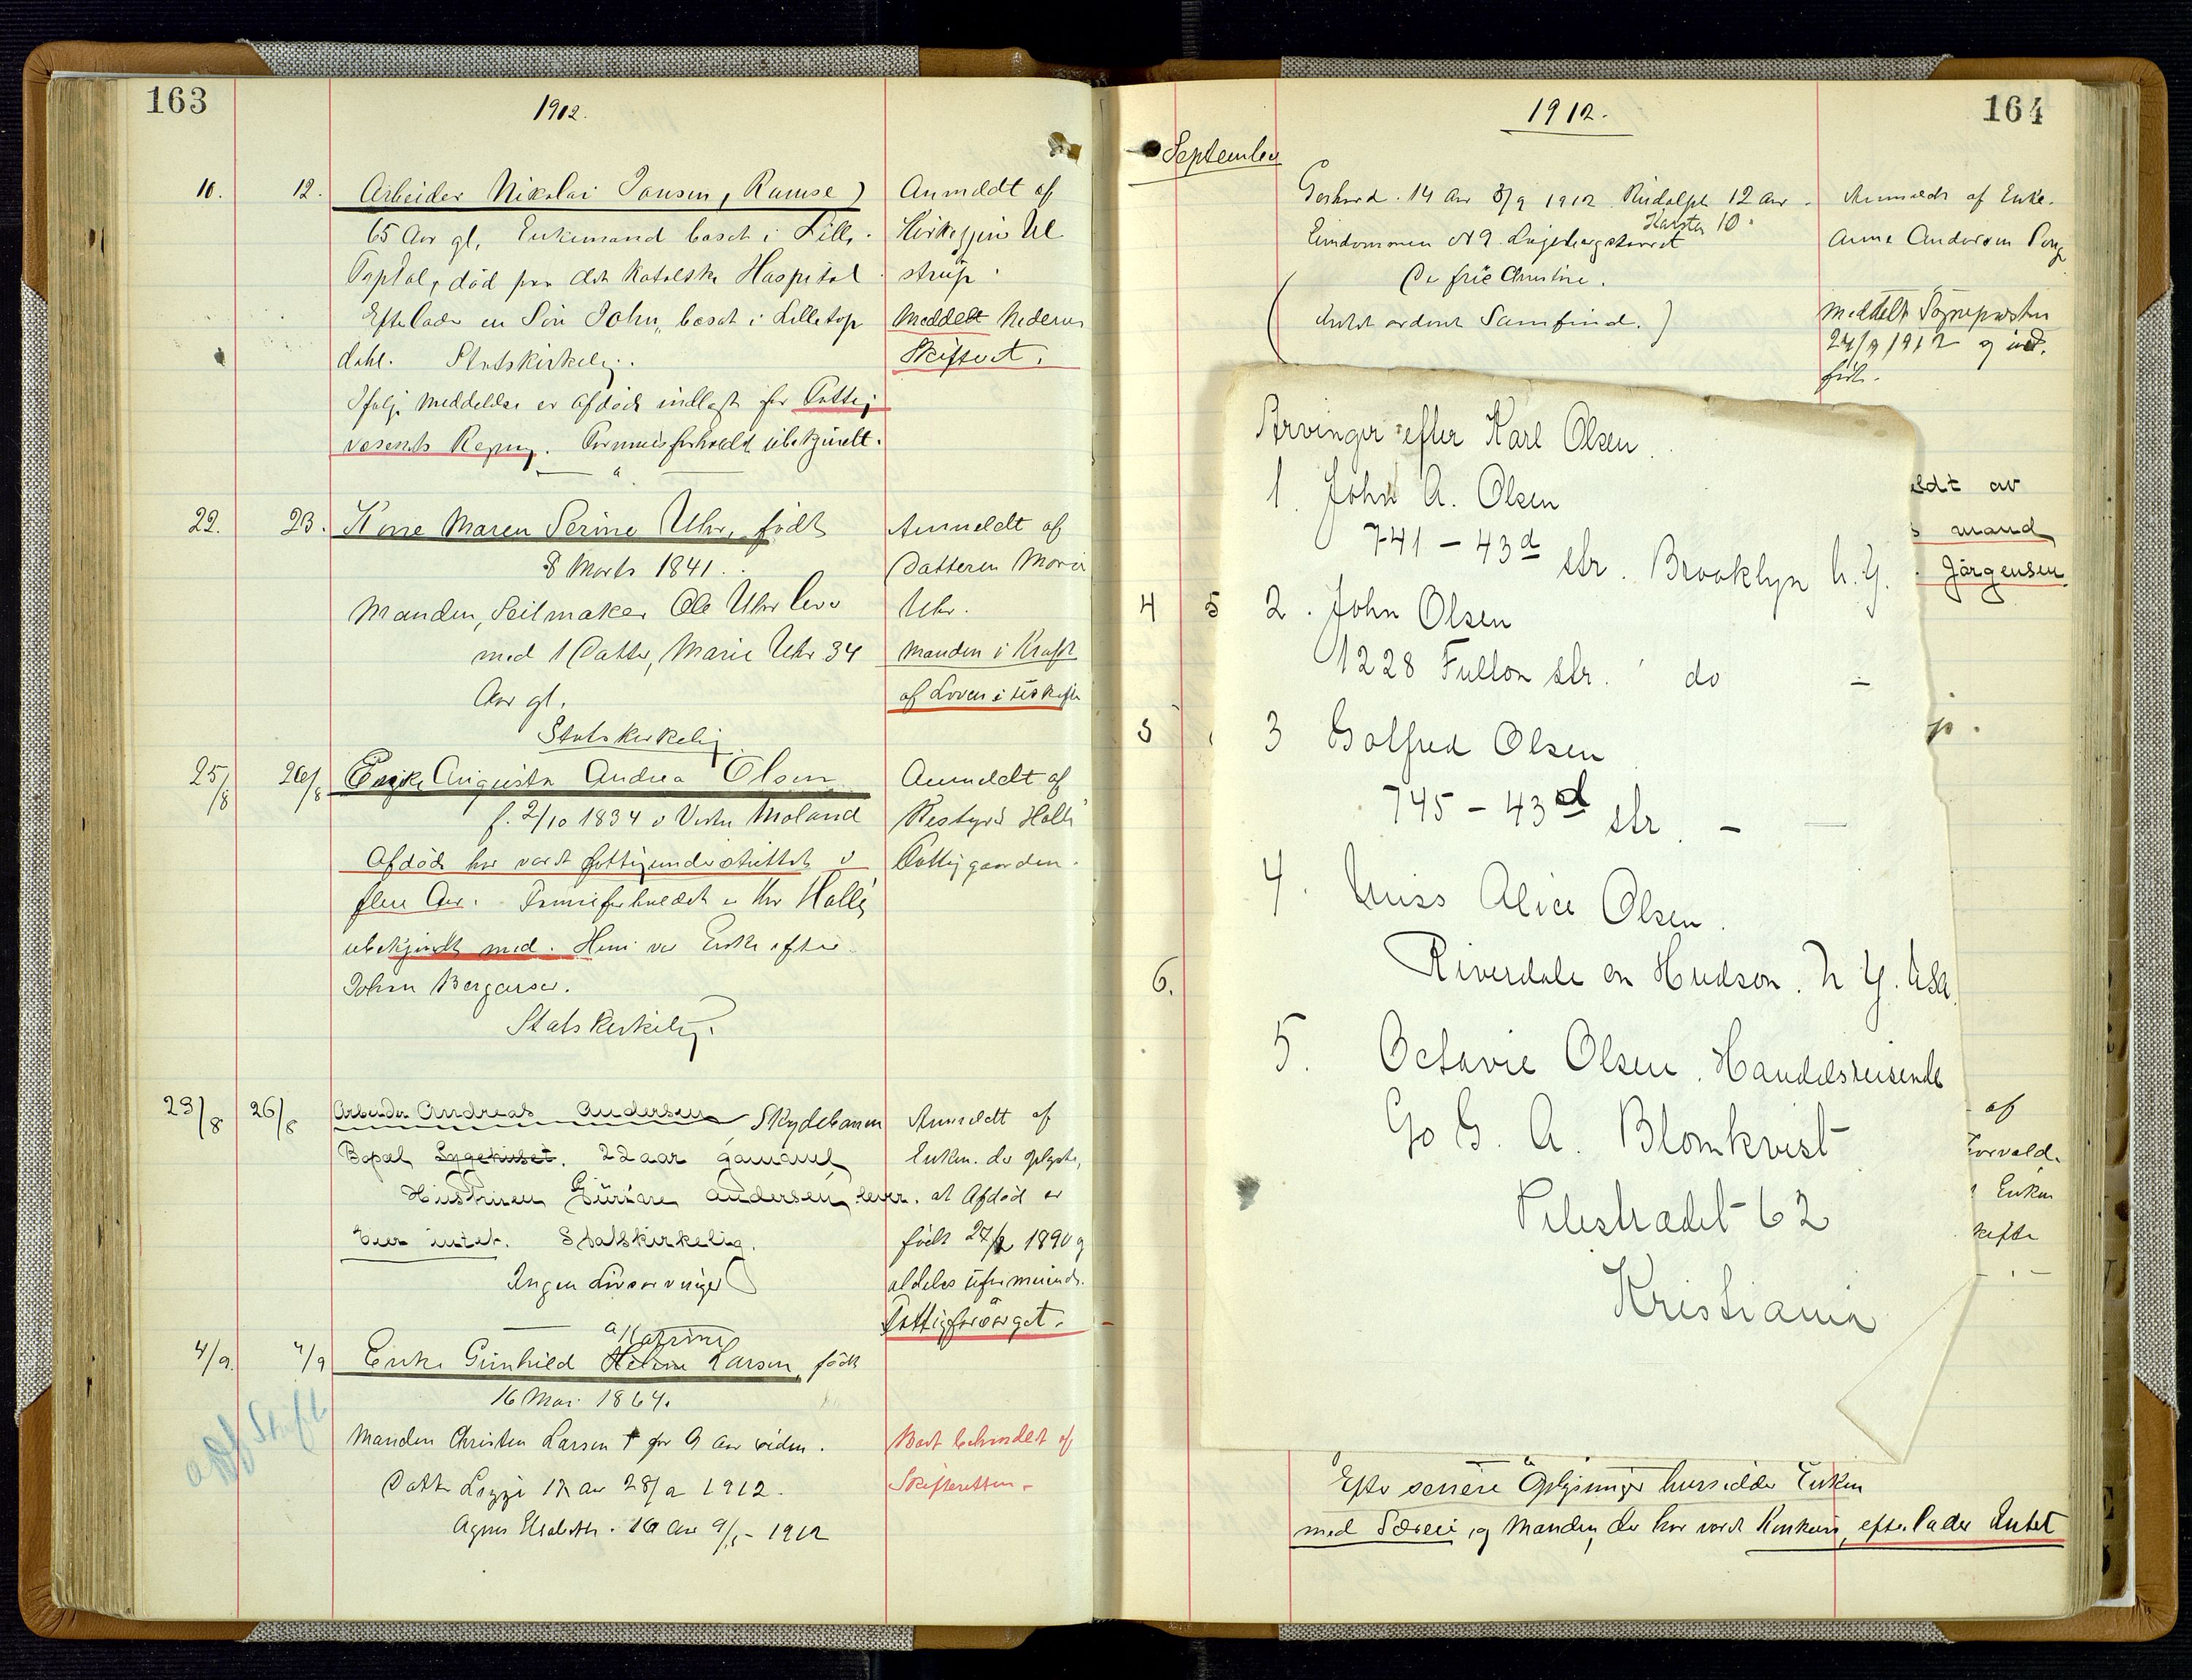 163
1912.
10. 12. Arbeider Nikolai Jansen, Ramse) Anmeldt af
65 Aar gl, Enkemand bosat i Lille- Kirkespir Ul
Topdal, død paa det Katolske Hospital. strup.
Efterlader en Søn John, bosat i Lilletop Meddelt Nedenes
dahl. Statskirkelig. Skifteret.
Ifølge Meddelelse er Afdøde indlagt for Fattig
væsenets Regning. Formuesforholdet ubekjendt.
22. 23. Kone Maren Serine Uhr, født Anmeldt af
8 Marts 1841. Datteren Marie
Manden, Seilmaker Ole Uhr lever Uhr.
med 1 Datter, Marie Uhr 34 Manden i Kraft
Aar gl, af Loven i Uskifte
Statskirkelig
25/8 26/8 Enke Augusta Andrea Olsen Anmeldt af
f. 2/10 1834 i Vestre Moland Bestyrer Holli
Afdøde har været fattigunderstøttet i Fattiggaarden.
flere Aar. Formuesforholdet er Hr Holli
ubekjendt med. Hun var Enke efter
Johan Bergersen.
Statskirkelig.
23/8 26/8 Arbeider Andreas Andersen Skydebanen Anmeldt af
Bopæl Sygehuset. 22 aar gammel Enken. der oplyste,
Hustruen Gurine Andersen lever. at Afdød er
Eier intet. Statskirkelig. født 27/2 1890 og
Ingen Livsarvinger aldeles uformuende.
Fattigforsørget.
Katrine
4/9. 4/9 Enke Gunhild Helene Larsen, født
16 Mai 1864.
aff Skifte
Manden Christen Larsen † for 9 Aar siden. Bort behandlet af
Datter Lizzi 17 Aar 28/2 1912. Skifteretten.
Agnes Elisabeth. 16 Aar 9/5 - 1912
1912.
164
September
Gerhard. 14 Aar 3/9 1912 Rudolph 12 Aar. Anmeldt af Enke.
Karsten 10.
Eiendommen No 9. Anna Andersen
De frie Christne.
(Intet ordent Samfund.) Meddelt Sognepresten
24/9 1912 og ind.
ført.
Arvinger efter Karl Olsen.
1. John A. Olsen
741 - 43d str. Brooklyn N.Y.
2. John Olsen
1228 Fulton str. do -
3 Golfred Olsen
745 - 43d str. -
4. Miss Alice Olsen.
Riverdale on Hudson. N Y. USA.
5. Octavie Olsen. Handelsreisende
C/o G. A. Blomkvist
Pilestrædet 62
Kristiania
ldt av
s mand
Jørgensen
4 5
5
6.
af
Torvald.
Enken
kifte
Efter senere Oplysninger hensidder Enken
med Særeie, og Manden, der har været Konkurs, efterlader Intet